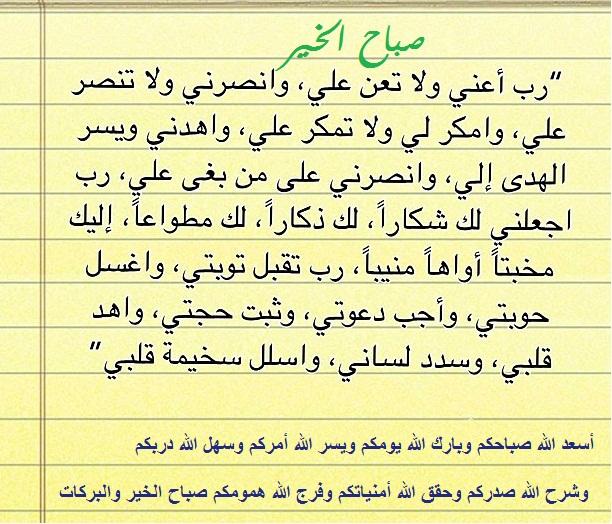 صباح الخير
"رب أعني ولا تعن علي، وانصرني ولا تنصر
علي، وامكر لي ولا تمكر علي، واهدني ويسر
الهدى إلي، وانصرني على من بغى علي، رب
اجعلني لك شكاراً، لك ذكاراً، لك مطواعاً، إليك
مخبتاً أواهاً منيباً، رب تقبل توبتي، واغسل
حوبتي، وأجب دعوتي، وثبت حجتي، واهد
قلبي، وسدد لساني، واسلل سخيمة قلبي"
أسعد الله صباحكم وبارك الله يومكم ويسر الله أمركم وسهل الله دربكم
وشرح الله صدركم وحقق الله أمنياتكم وفرج الله همومكم صباح الخير والبركات